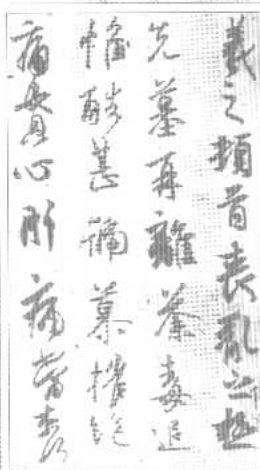 羲之頓首喪亂之極
先墓再離荼毒追
惟酷甚號慕摧絶
痛貫心肝痛當奈何